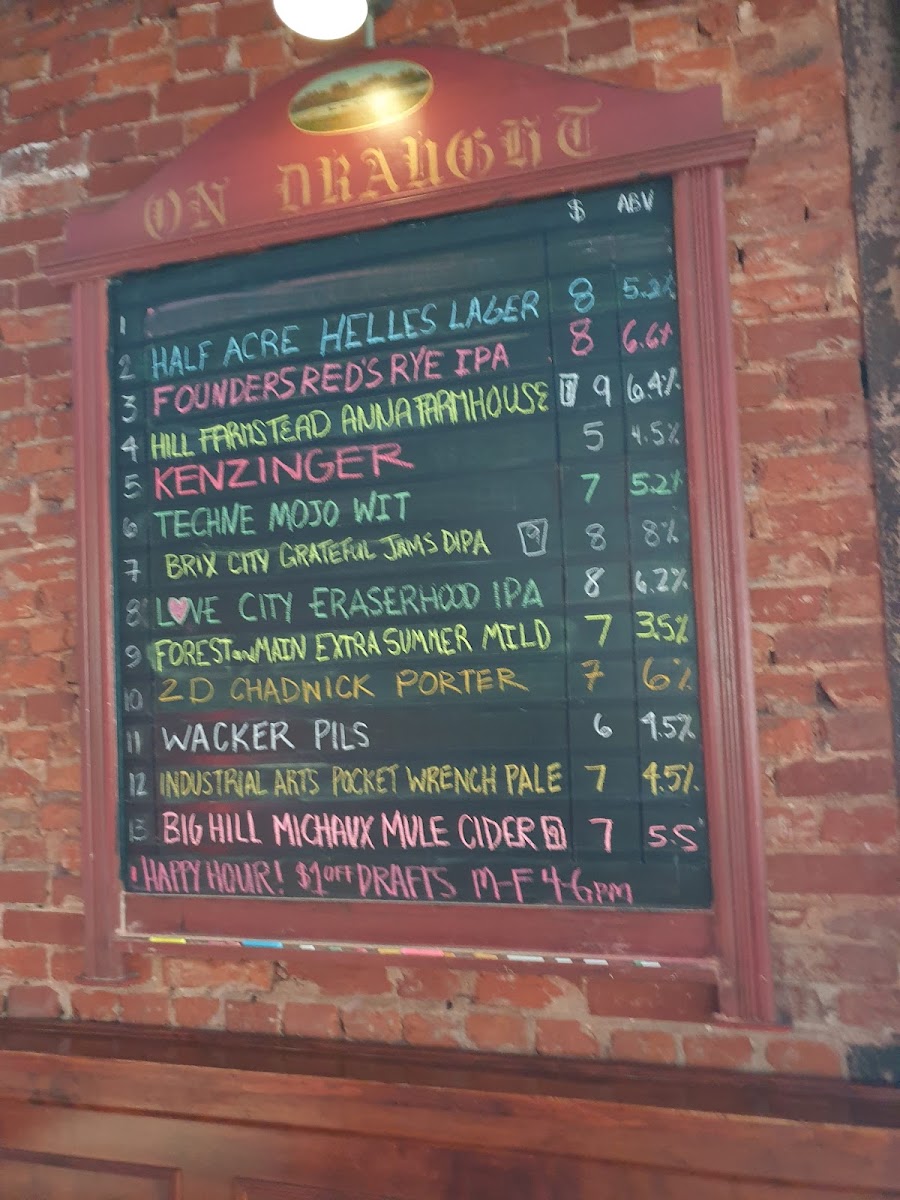 ON DRAUGHT
$ ABV
1
2 HALF ACRE HELLES LAGER 8 5.2%
3 FOUNDERS RED'S RYE IPA 8 6.6%
4 HILL FARMSTEAD ANNA FARMHOUSE 9 6.4%
5 KENZINGER 5 4.5%
6 TECHNE MOJO WIT 7 5.2%
7 BRIX CITY GRATEFUL JAMS DIPA 9 8 8%
8 LOVE CITY ERASERHOOD IPA 8 6.2%
9 FOREST and MAIN EXTRA SUMMER MILD 7 3.5%
10 2D CHADNICK PORTER 7 6%
11 WACKER PILS 6 4.5%
12 INDUSTRIAL ARTS POCKET WRENCH PALE 7 4.5%
13 BIG HILL MICHAUX MULE CIDER 7 5.5
HAPPY HOUR! $1 OFF DRAFTS M-F 4-6PM